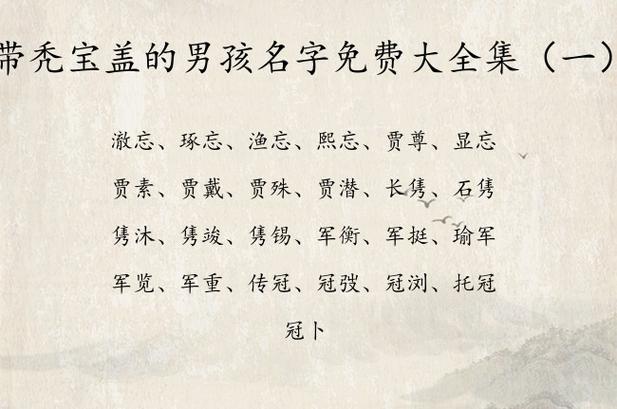 带秃宝盖的男孩名字免费大全集（一）
澈忘、琢忘、渔忘、熙忘、贾尊、显忘
贾素、贾戴、贾殊、贾潜、长隽、石隽
隽沐、隽竣、隽锡、军衡、军挺、瑜军
军览、军重、传冠、冠弢、冠浏、托冠
冠卜